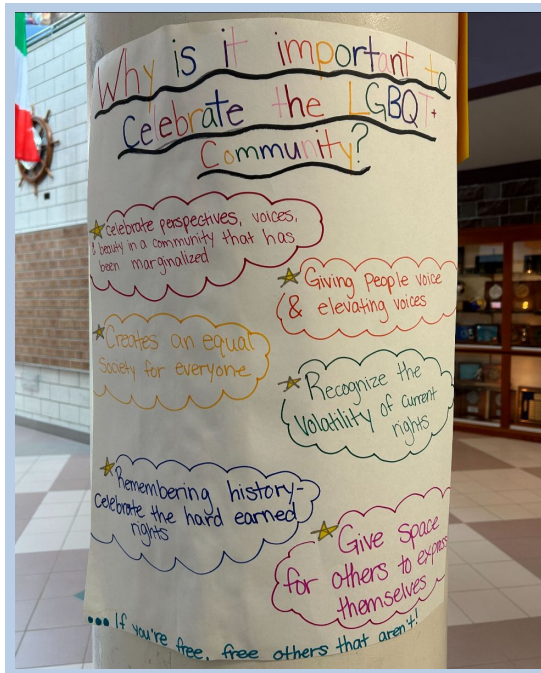 Why is it important to
Celebrate the LGBQT+
Community?
celebrate perspectives, voices,
& beauty in a community that has
been marginalized
Giving People voice
& elevating voices
Creates an equal
Society for everyone
Recognize the
volatility of current
rights
Remembering history-
celebrate the hard earned
rights
Give space
for others to express
themselves
... If you're free, free others that aren't!